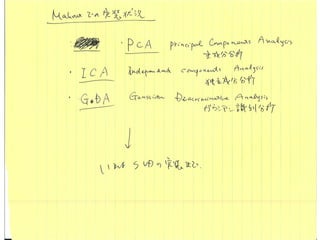 Mahout での実装状況
・PCA principal Components Analysis
主成分分析
・ICA Independent components Analysis
独立成分分析
・GDA Gaussian Descriminative Analysis
ガウシアン識別分析
の実装まで.